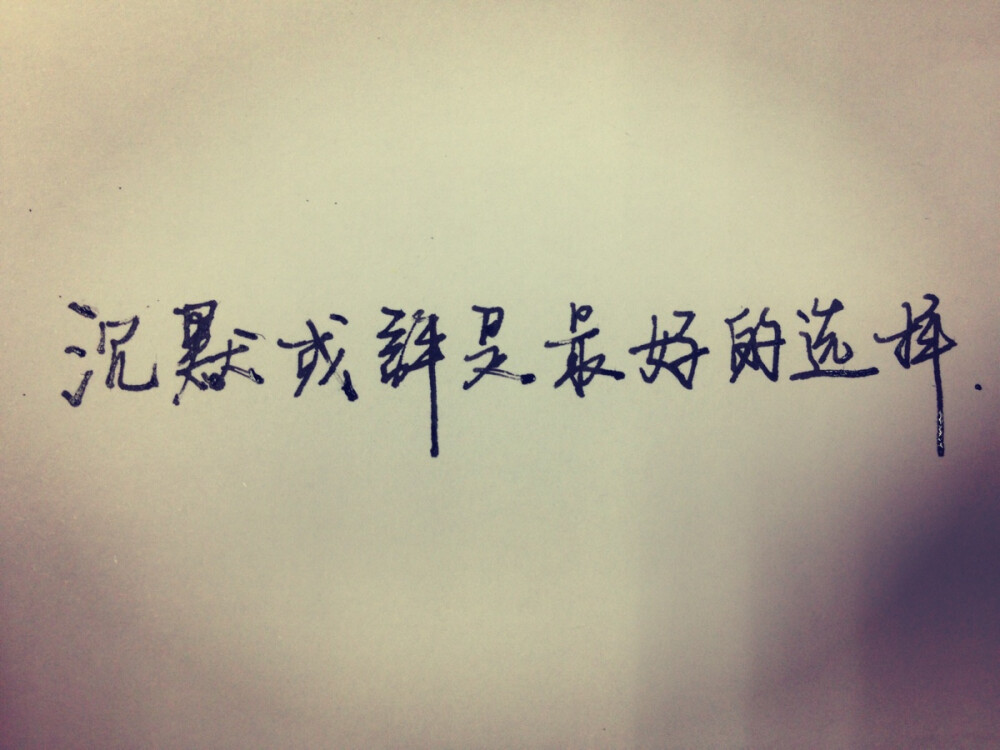 沉默或許是最好的选择.